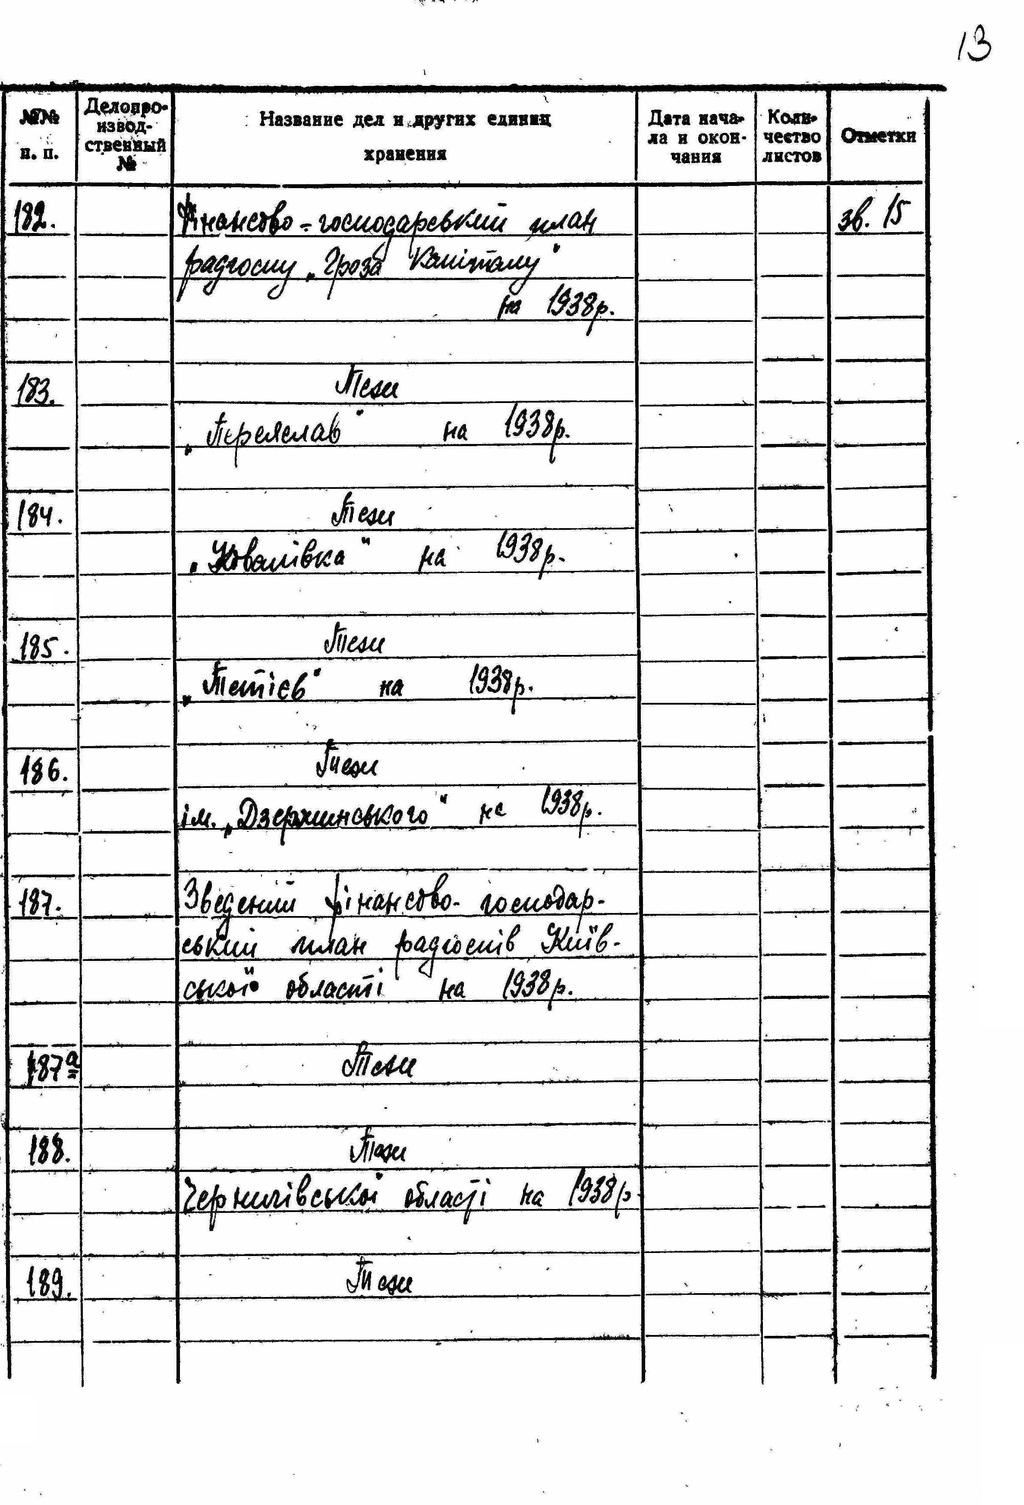 13
№№ п. п.
Делопро-
извод-
ственный
№
Название дел и других единиц
хранения
Дата нача-
ла и окон-
чания
Коли-
чество
листов
Отметки
182. Фінансово-господарський план зв. 15
радгоспу „Гроза Капіталу"
на 1938р.
183. Тези
„Переяслав" на 1938р.
184. Тези
„Ковалівка" на 1938р.
185. Тези
„Тетієв" на 1938р.
186. Тези
ім. „Дзержинського" на 1938р.
187. Зведений фінансово-господар-
ський план радгоспів Київ-
ської області на 1938р.
187а Тези
188. Тези
Чернигівської області на 1938р
189. Тези